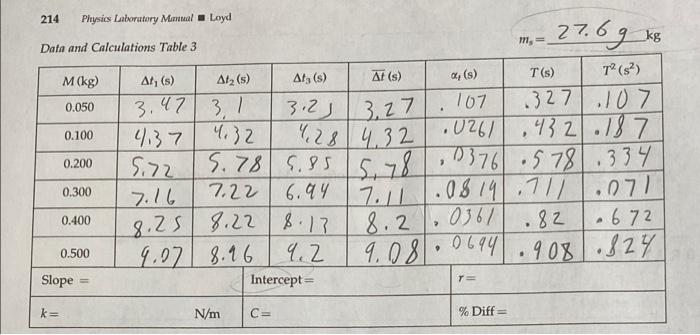 214 Physics Laboratory Manual ■ Loyd
mₛ = 27.6 g kg
Data and Calculations Table 3
M (kg) Δt₁ (s) Δt₂ (s) Δt₃ (s) Δt (s) αₜ (s) T (s) T² (s²)
0.050 3.47 3.1 3.27 .107 .327 .107
0.100 4.37 4.32 4.28 4.32 .0261 .432 .187
0.200 5.72 5.78 5.85 5.78 .0376 .578 .334
0.300 7.16 7.22 6.94 7.11 .0819 .711 .071
0.400 8.25 8.22 8.13 8.2 .0361 .82 .672
0.500 9.07 8.96 9.2 9.08 .0694 .908 .824
Slope = Intercept = r =
k = N/m C = % Diff =